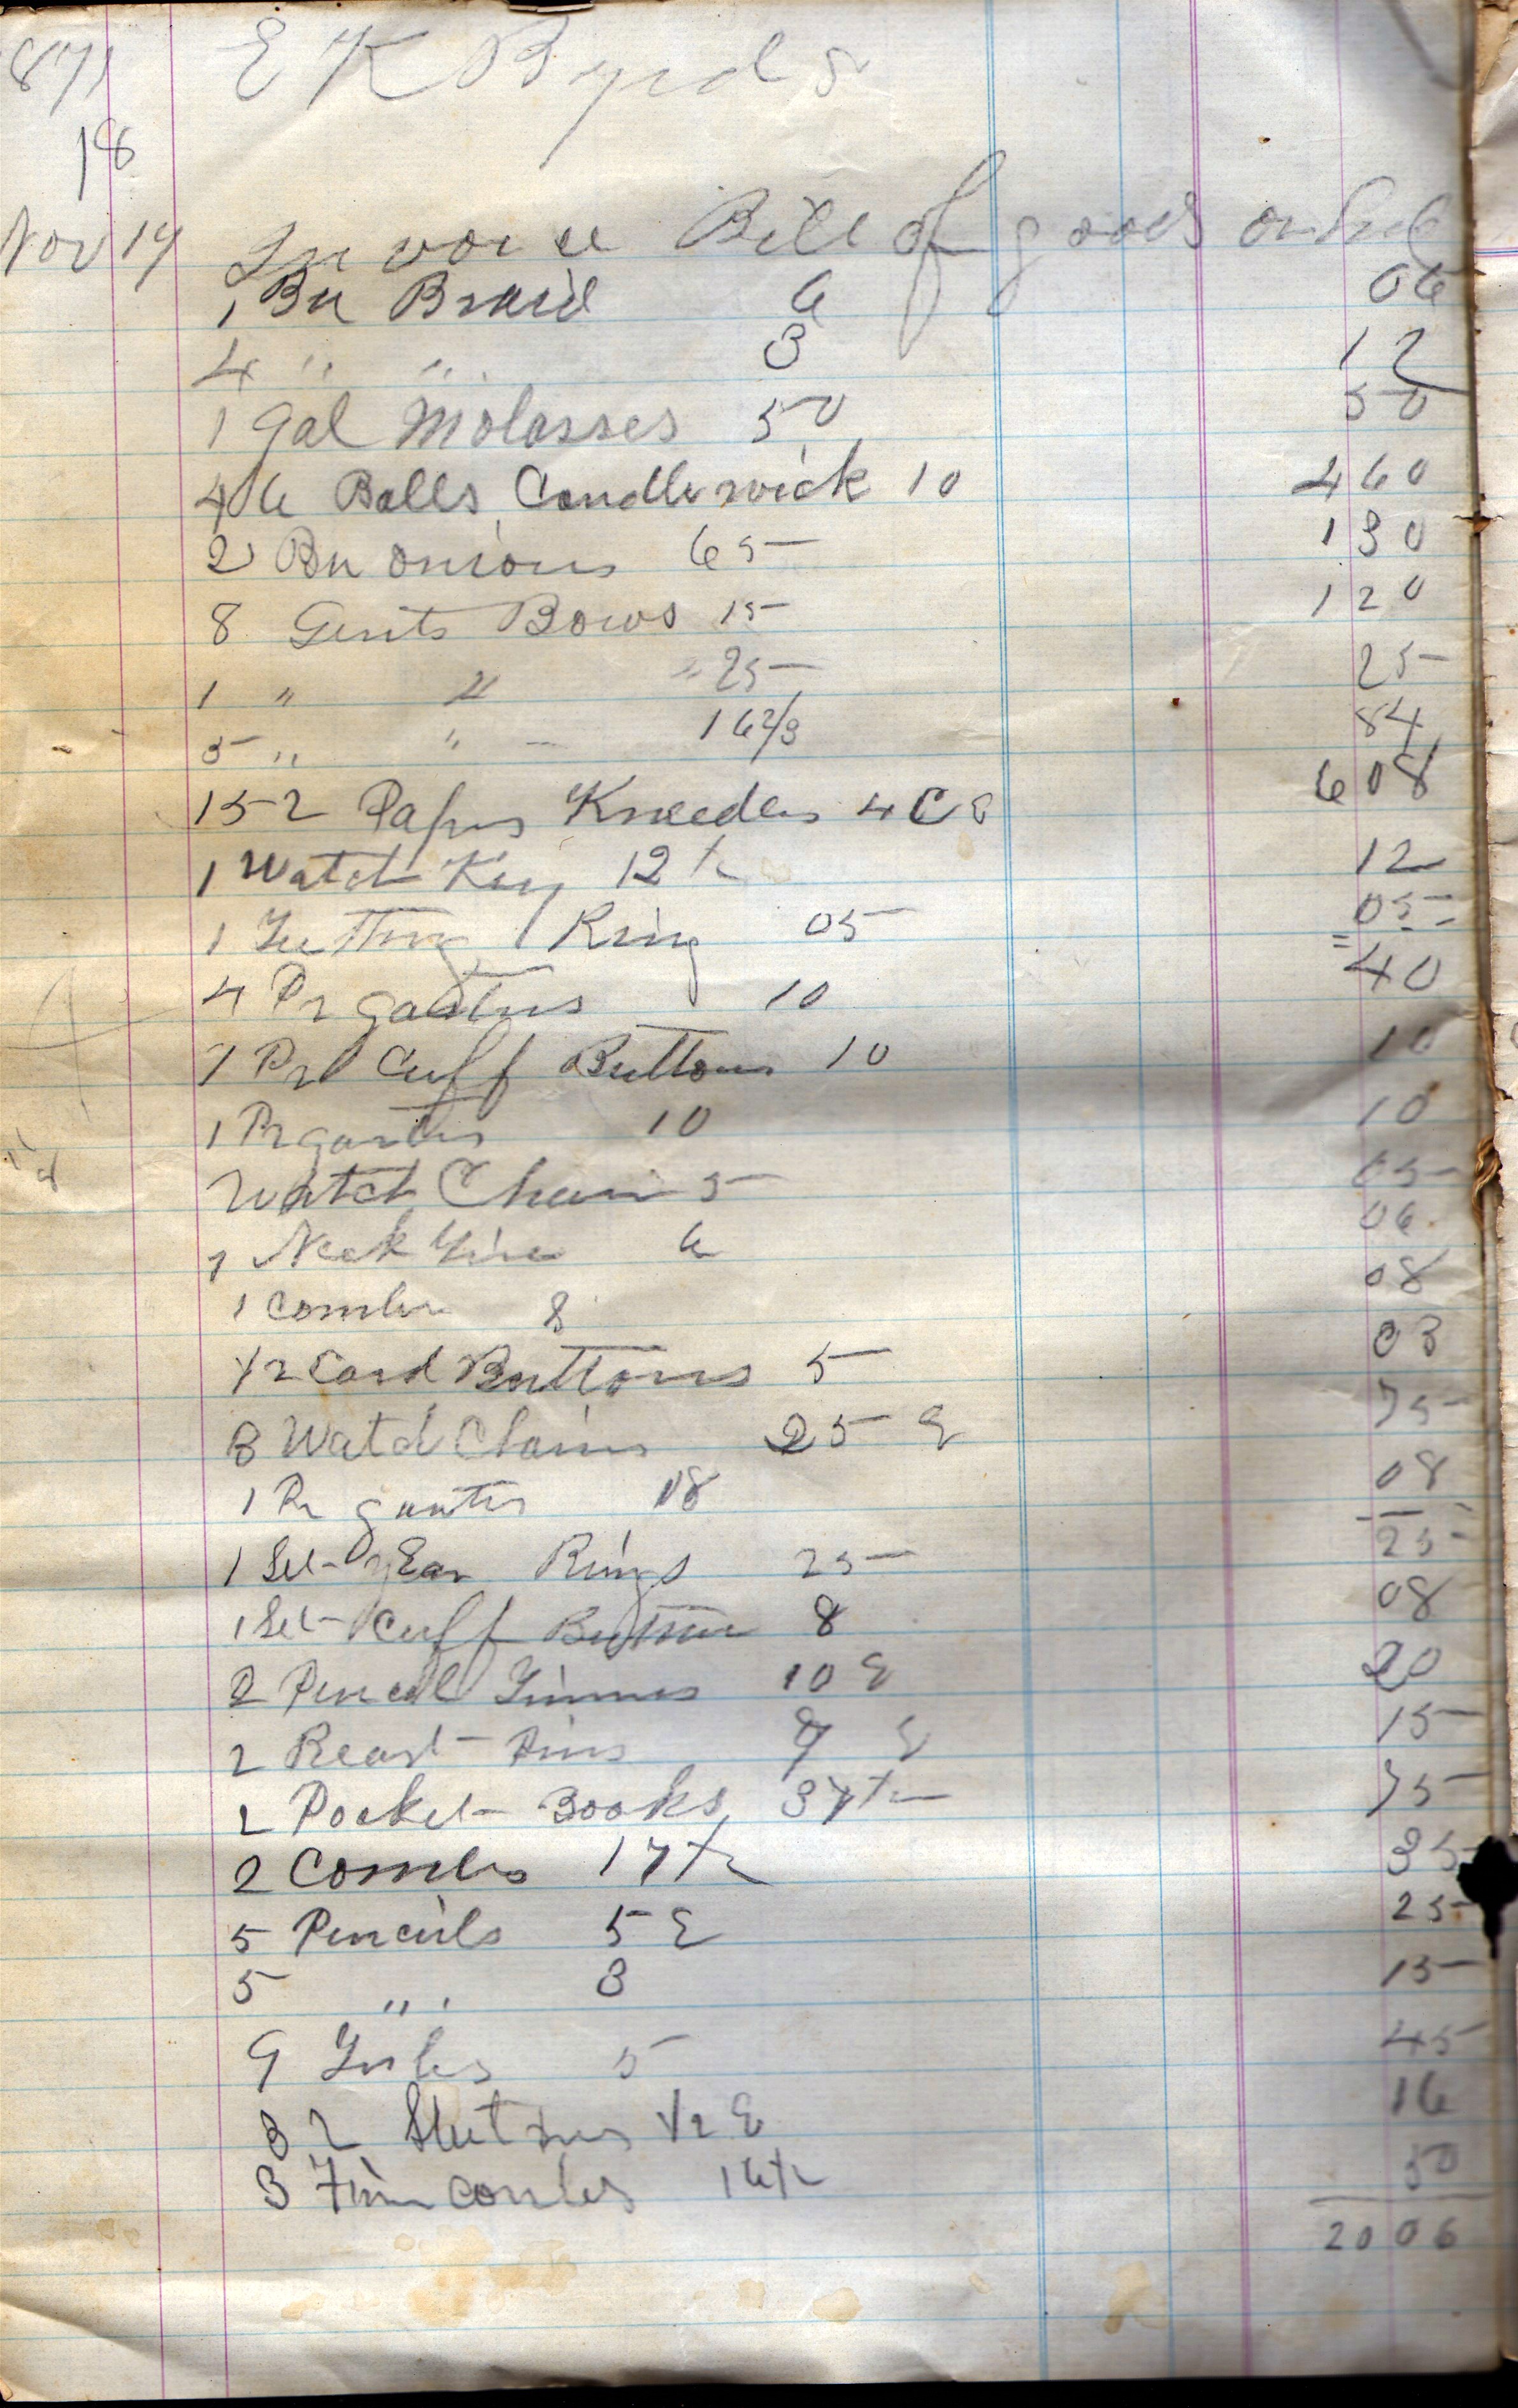 871 E K Byrds
18
Nov 14 Invoice Bill of goods on
1 Bu Braid 6 06
4 " " 3 12
1 gal Molasses 50 50
46 Balls Candlewick 10 460
2 Bu onions 65 130
8 Gents Bows 15 120
1 " " " 25 25
5 " " 16 2/3 84
152 Papers Kneedles 4 C 608
1 Watch Key 12 ½ 12
1 Ring 05 05
4 Pr garters 10 40
1 Pr Cuff Buttons 10 10
1 Pr garters 10 10
Watch Chain 5 05
1 Neck 6 06
1 Comb 8 08
½ Card Buttons 5 03
3 Watch Chains 25 75
1 Pr garters 08 08
1 Set Ear Rings 25 25
1 Set Cuff Buttons 8 08
2 Pencil 10 20
2 Breast Pins 15
2 Pocket Books 37 ½ 75
2 Combs 17 ½ 35
5 Pencils 5 25
5 " 3 15
9 5 45
32 ½ 16
3 Fine Combs 16 ½ 50
2006